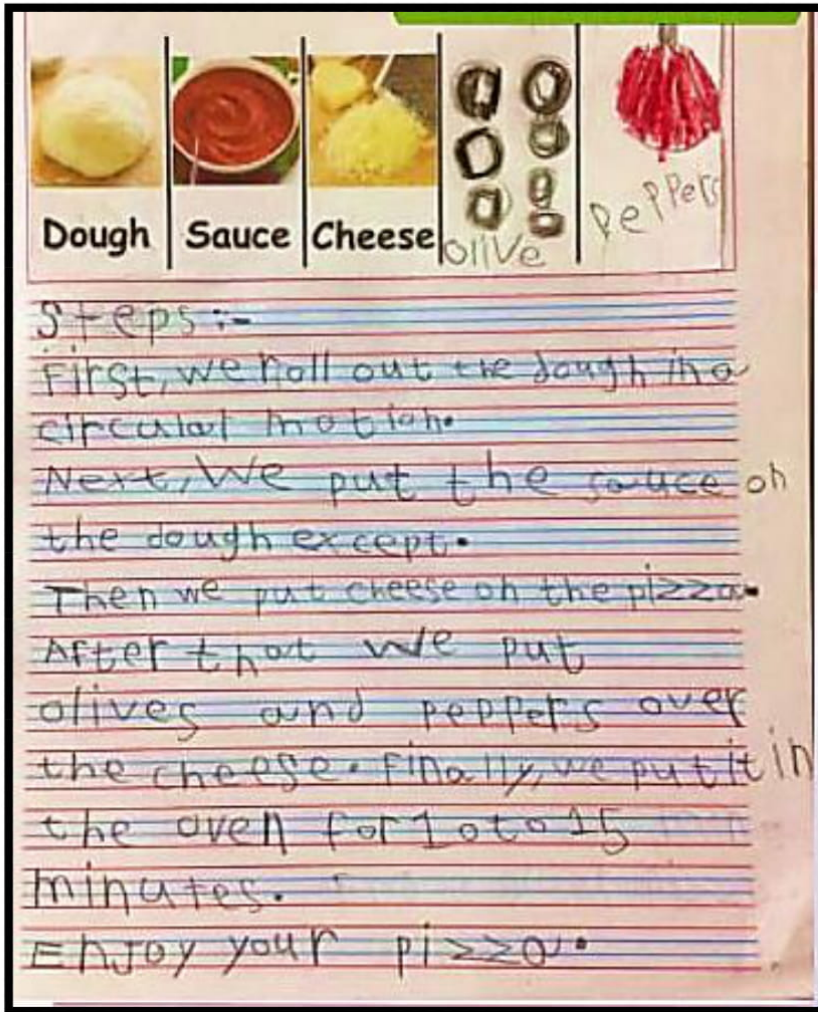 Dough Sauce Cheese olive peppers
Steps:-
First, we roll out the dough in a
circular motion.
Next, We put the sauce on
the dough except.
Then we put cheese on the pizza.
After that we put
olives and peppers over
the cheese. Finally, we put it in
the oven for 10 to 15
minutes.
Enjoy your pizza.